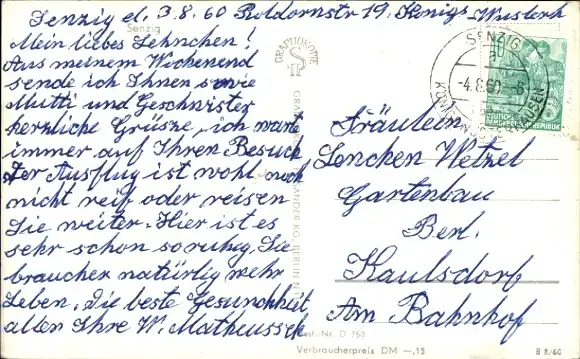 Senzig d. 3.8.60 Roldornstr 19, Königs Wusterh
Senzig
Mein liebes Lehnchen!
Aus meinem Wochenend
sende ich Ihnen sowie
Mutti und Geschwister
herzliche Grüsse, ich warte
immer auf Ihren Besuch
Der Ausflug ist wohl noch
nicht reif oder reisen
Sie weiter. Hier ist es
sehr schon so ruhig. Sie
braucher natürlig mehr
Leben. Die beste Gesundheit
allen Ihre W. Matheussek
GRAPHOKOPIE
SENZIG
-4.8.60 -6
KÖNIGS WUSTERHAUSEN
10
DEUTSCHE
DEMOKRATISCHE REPUBLIK
Fräulein
Lenchen Wetzel
Gartenbau
Berl.
Kaulsdorf
Am Bahnhof
Best.-Nr. D 750
Verbraucherpreis DM -,15
B 8/60